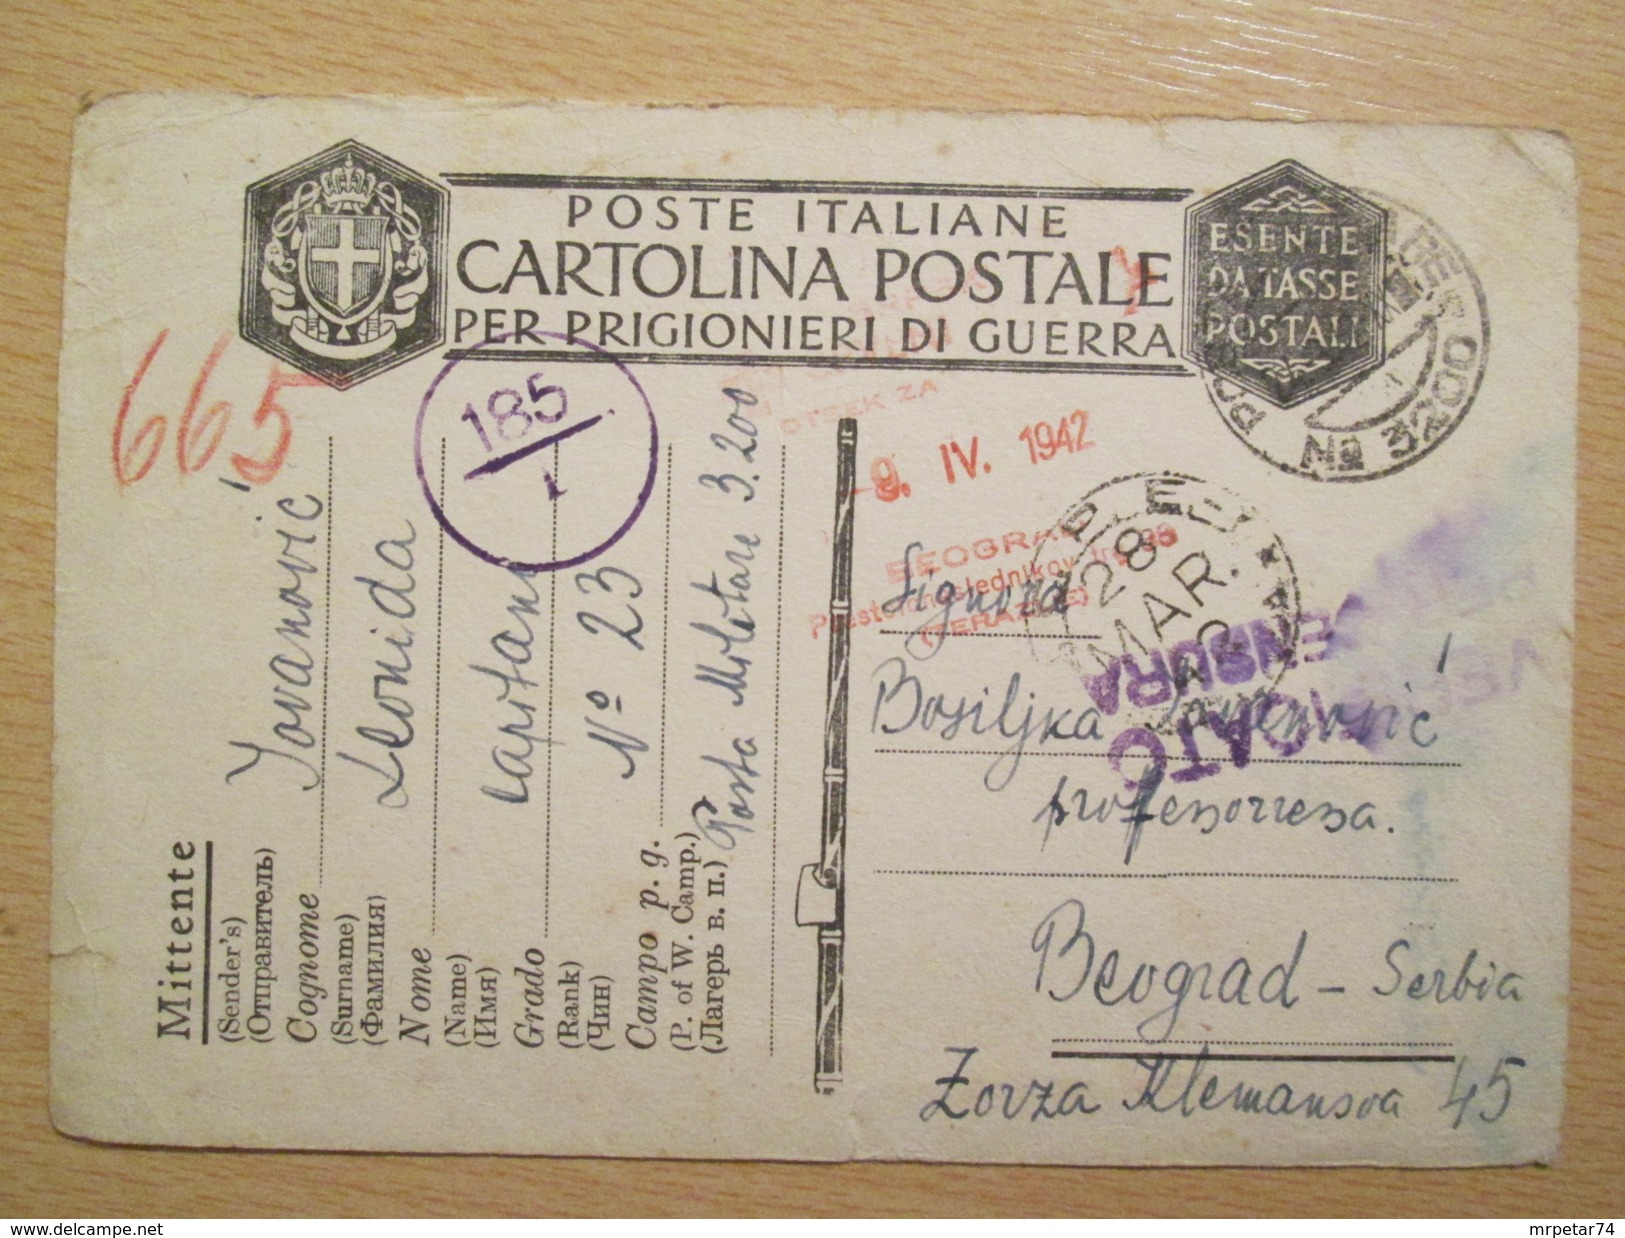 POSTE ITALIANE
CARTOLINA POSTALE
PER PRIGIONIERI DI GUERRA
ESENTE
DA TASSE
POSTALI
Nº 3200
665
185
1
OTSEK ZA
9. IV. 1942
BEOGRAD
(TERAZIJE)
28
MAR.
CENSURA
Mittente
(Sender's)
(Отправитель)
Cognome Jovanović
(Surname)
(Фамилия)
Nome Leonida
(Name)
(Имя)
Grado capitano
(Rank)
(Чин)
Campo p. g. Nº 23
(P. of W. Camp.)
(Лагерь в. п.) Posta Militare 3.200
Signora
Bosiljka Jovanović
professorressa.
Beograd - Serbia
Zorža Klemansoa 45
delcampe.net
mrpetar74